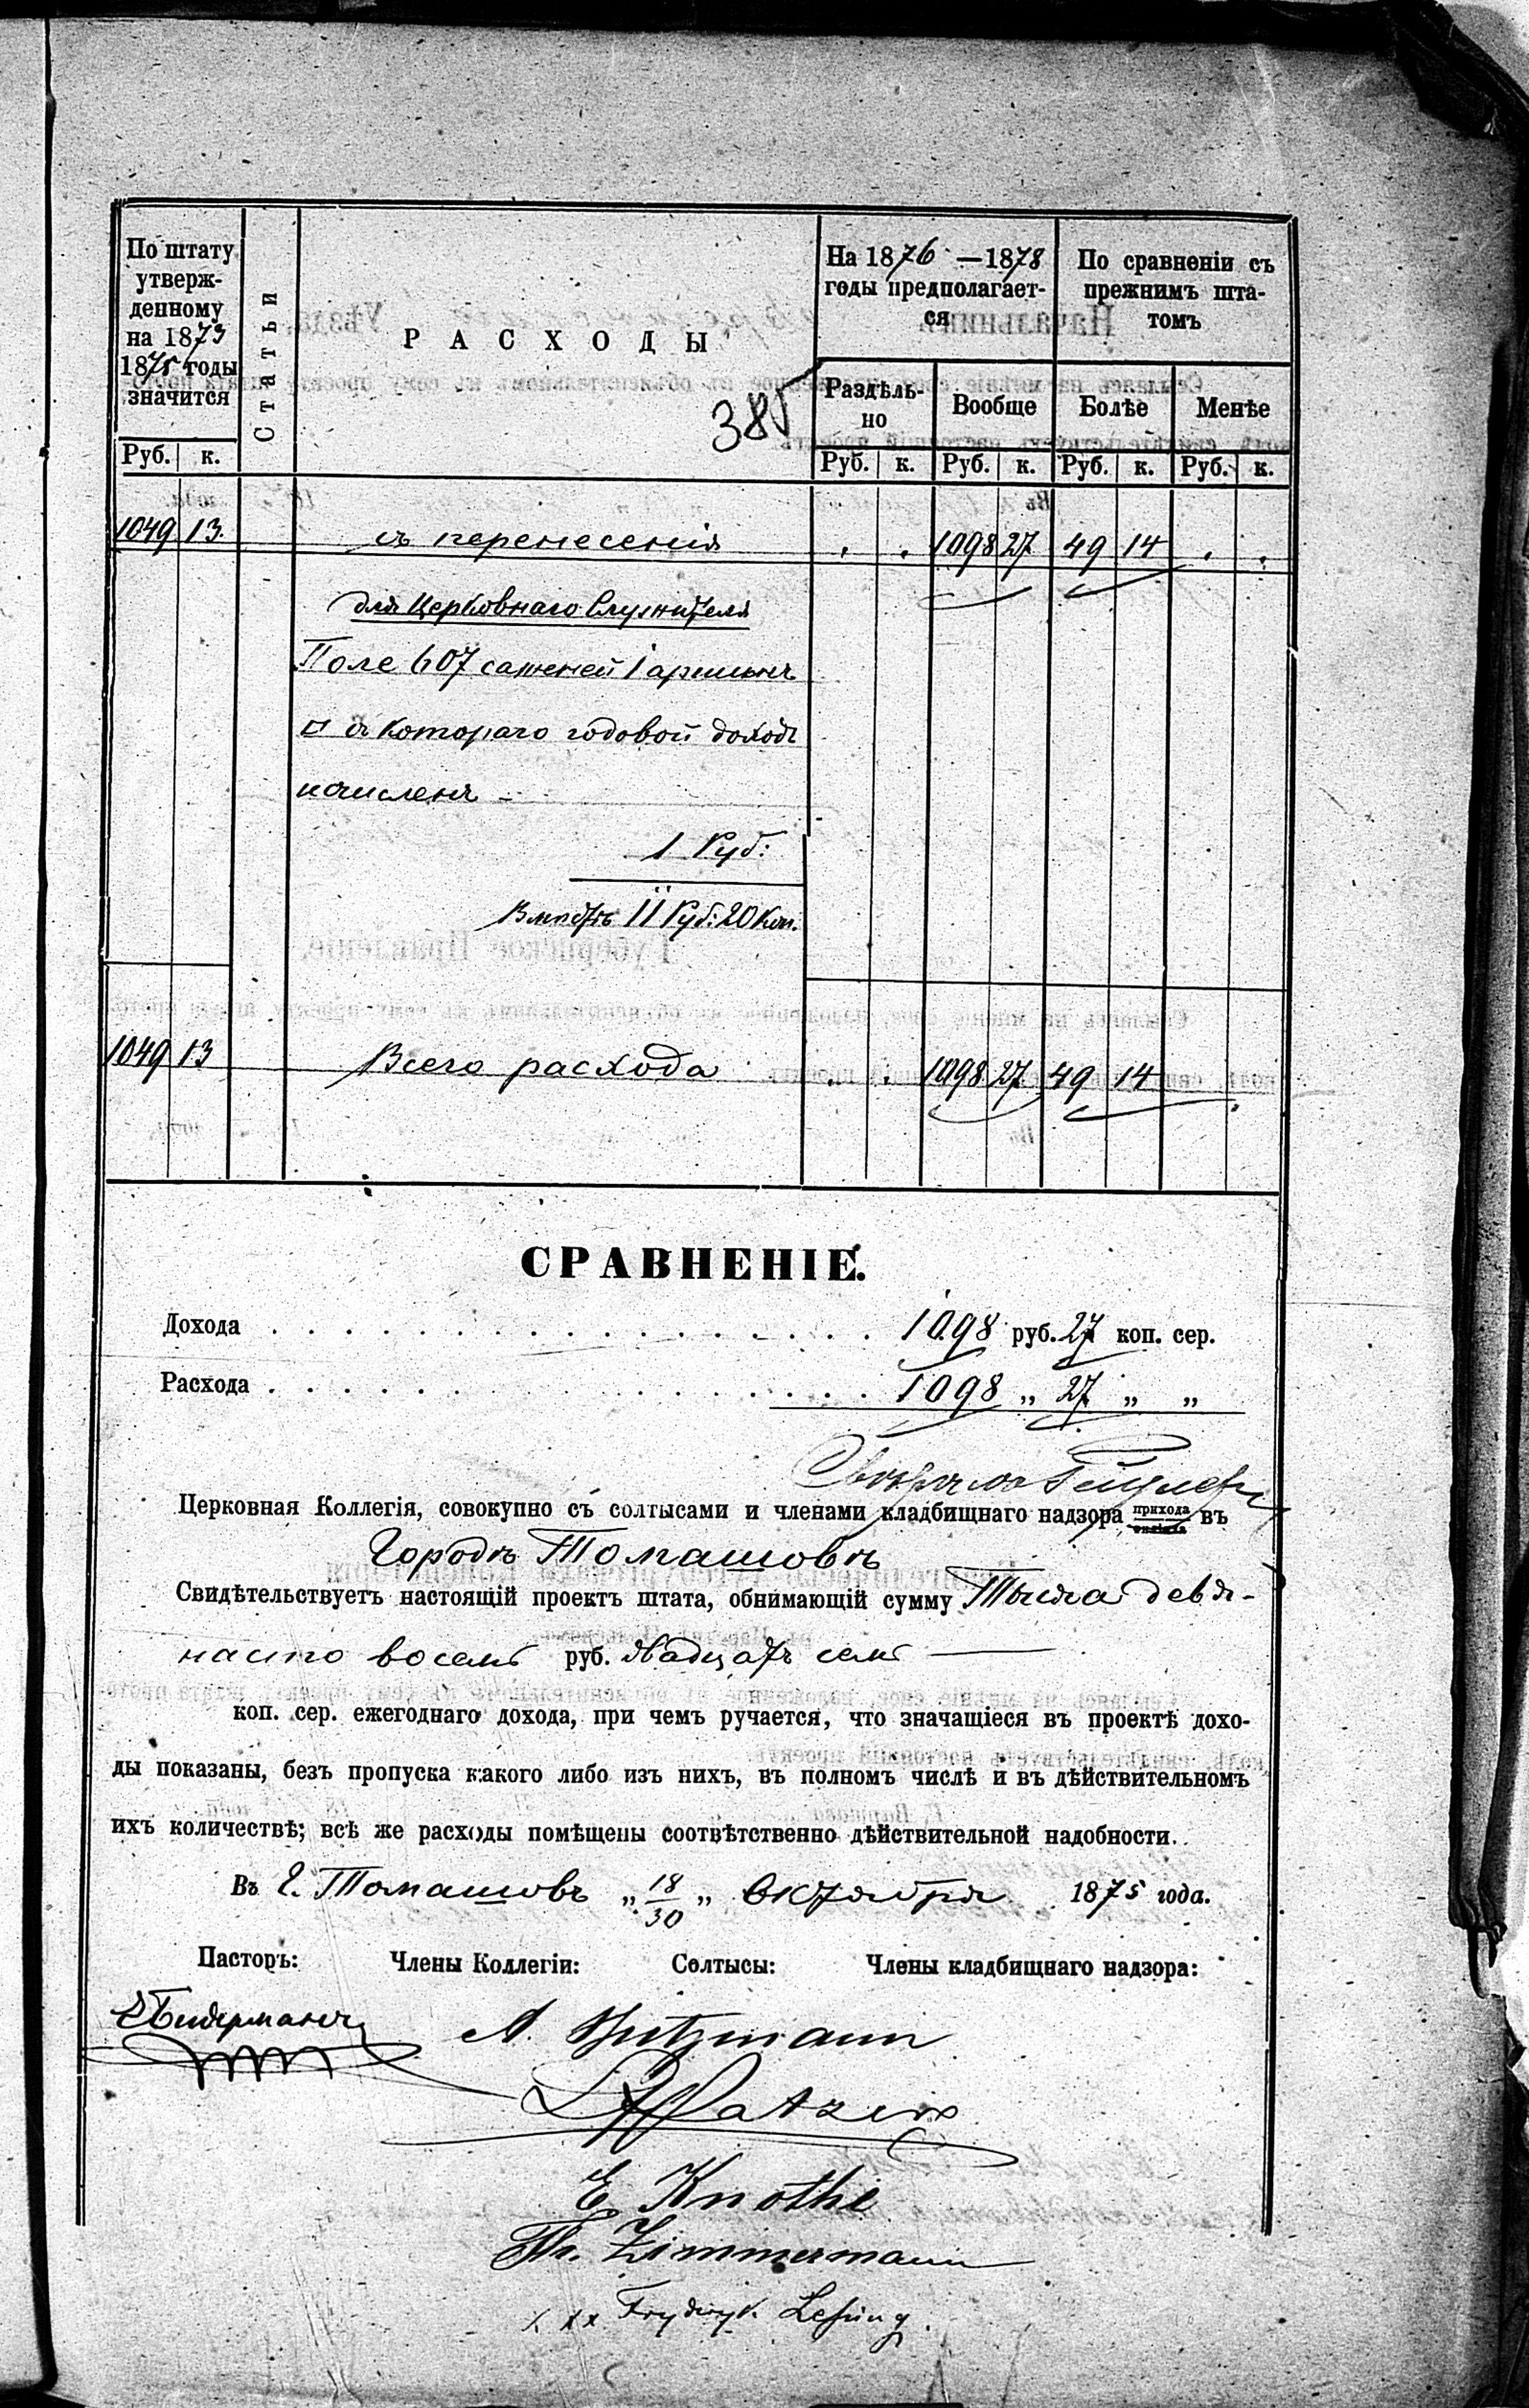 По штату утвержденному на 1873 1875 годы значится
Статьи
РАСХОДЫ
На 1876 — 1878 годы предполагается
По сравненіи съ прежнимъ штатомъ
385
Раздѣльно
Вообще
Болѣе
Менѣе
Руб. к.
Руб. к. Руб. к. Руб. к. Руб. к.
1049 13. съ перенесенія . . 1098 27 49 14 . .
для Церковнаго Служителя
Поле 607 саженей 1 аршинъ
□ съ котораго годовой доходъ
исчисленъ –
1 Руб:
Вмѣстѣ 11 Руб: 20 Коп.
1049 13 Всего расхода . . 1098 27 49 14
СРАВНЕНІЕ.
Дохода . . . . . . . . . . . . . . . . . 1098 руб. 27 коп. сер.
Расхода . . . . . . . . . . . . . . . . . 1098 „ 27 „ „
Церковная Коллегія, совокупно съ солтысами и членами кладбищнаго надзора прихода въ
Городѣ Томашовѣ
Свидѣтельствуетъ настоящій проектъ штата, обнимающій сумму Тысяча девя-
носто восемь руб. двадцать семь —
коп. сер. ежегоднаго дохода, при чемъ ручается, что значащіеся въ проектѣ дохо-
ды показаны, безъ пропуска какого либо изъ нихъ, въ полномъ числѣ и въ дѣйствительномъ
ихъ количествѣ; всѣ же расходы помѣщены соотвѣтственно дѣйствительной надобности.
Въ г. Томашовъ „ 18/30 „ Октября 1875 года.
Пасторъ: Члены Коллегіи: Солтысы: Члены кладбищнаго надзора:
Бидерманъ
E Knothe
Zimmermann
xxx Frydryk Leßing.